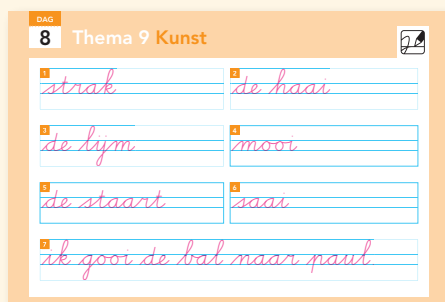 DAG
8 Thema 9 Kunst
1 strak
2 de haai
3 de lijm
4 mooi
5 de staart
6 saai
7 ik gooi de bal naar paul